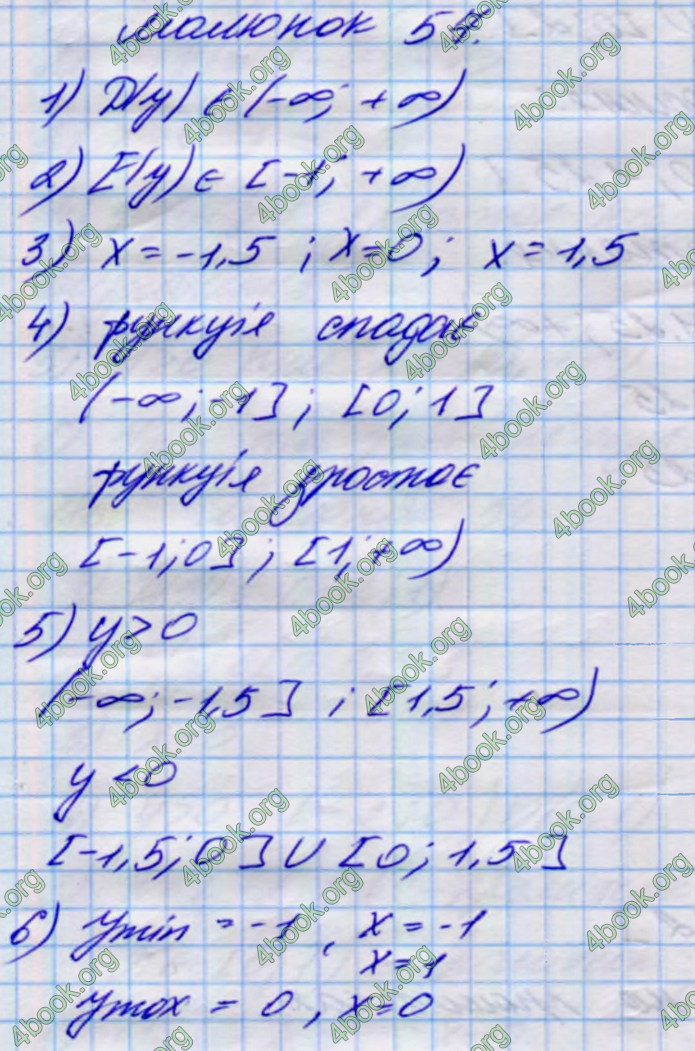 Малюнок 55.
1) D(y) ∈ (-∞; +∞)
2) E(y) ∈ [-1; +∞)
3) x = -1,5 ; x=0; x = 1,5
4) функція спадає
(-∞; -1]; [0; 1]
функція зростає
[-1; 0]; [1; +∞)
5) y > 0
(-∞; -1,5] ; [1,5; +∞)
y < 0
[-1,5; 0] U [0; 1,5]
6) ymin = -1, x = -1
x = 1
ymax = 0, x=0
4book.org